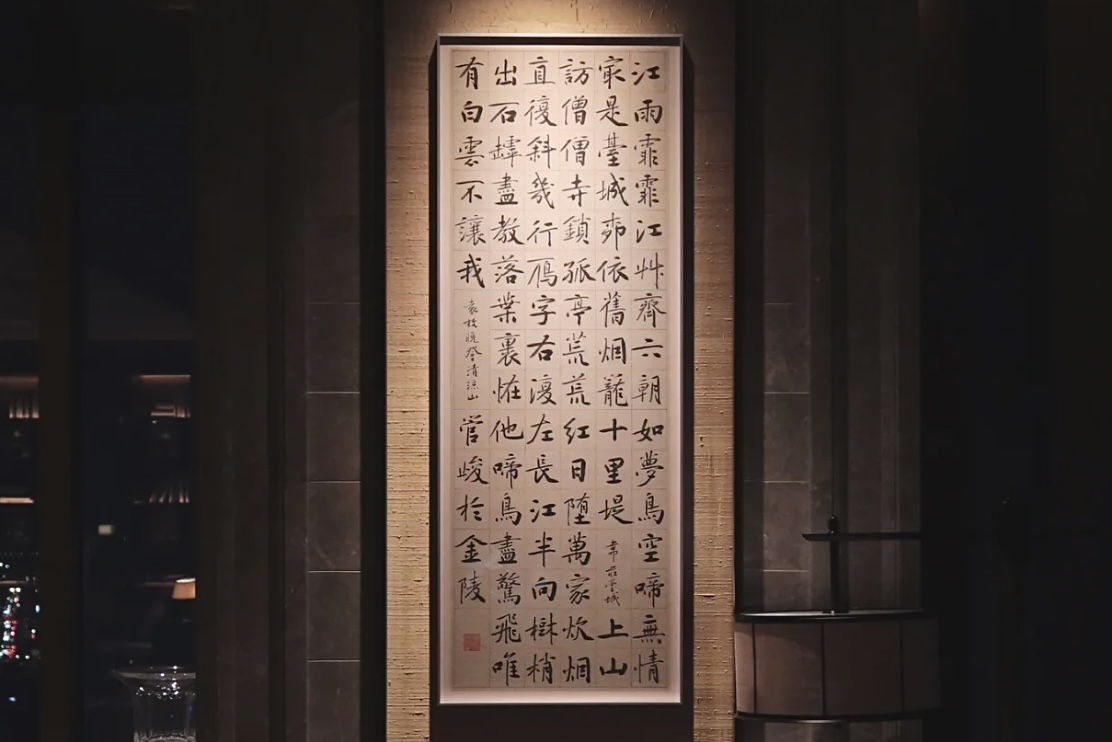 江雨霏霏江艸齊六朝如夢鳥空啼無情
冣是臺城桺依舊烟籠十里堤韋莊臺城上山
訪僧僧寺鎖孤亭荒荒紅日墮萬家炊烟
直復斜幾行鴈字右復左長江半向樹梢
出石罅盡教落葉裏恠他啼鳥盡驚飛唯
有白雲不讓我袁枚晚登清涼山管峻於金陵